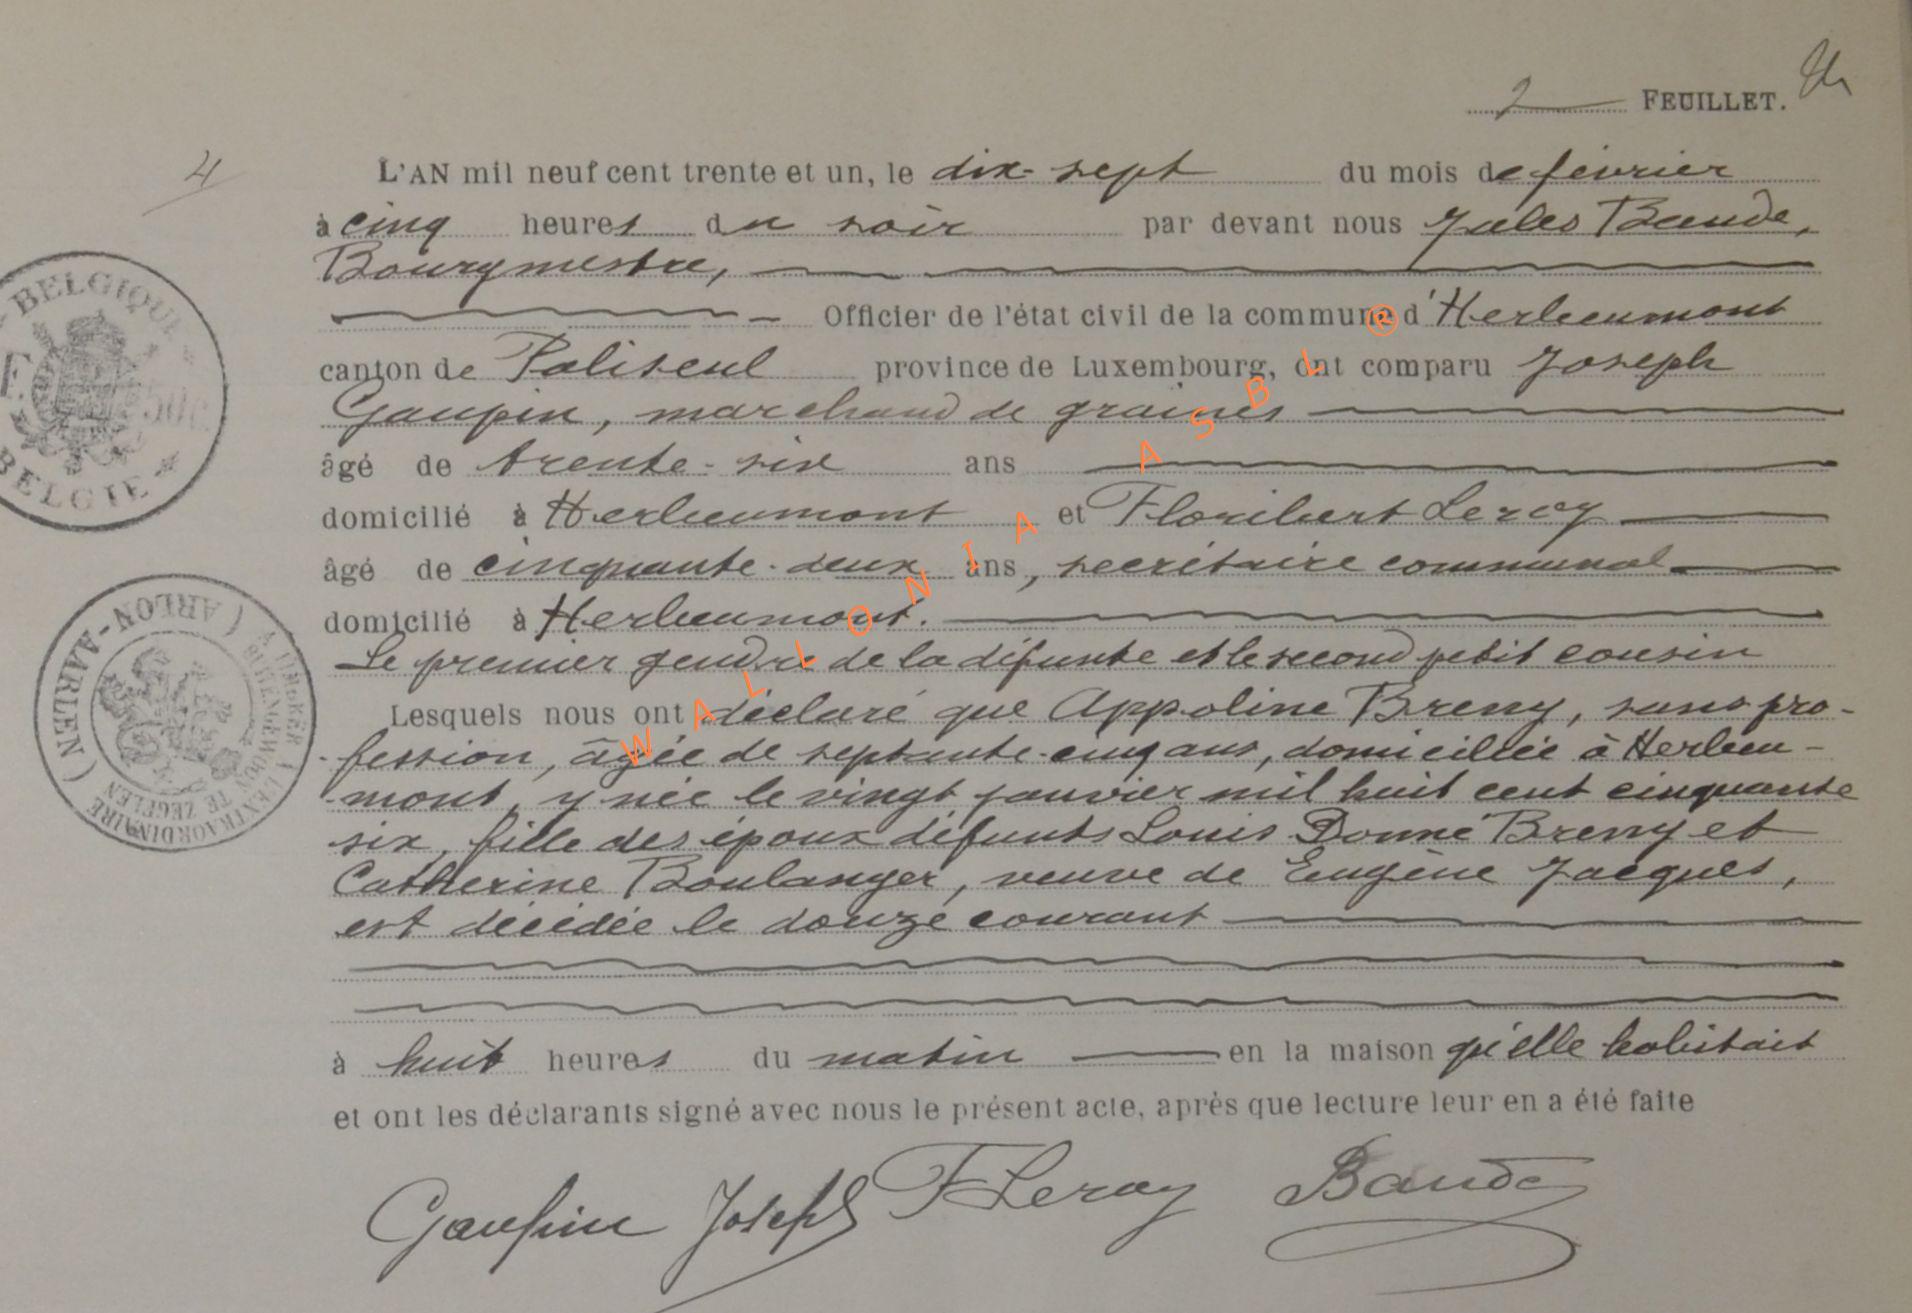 2 FEUILLET.
4
L'AN mil neuf cent trente et un, le dix-sept du mois de février
à cinq heures du soir par devant nous Jules Baude,
Bourgmestre,
Officier de l'état civil de la commune d'Herbeumont
canton de Paliseul province de Luxembourg, ont comparu Joseph
Gaupin, marchand de graines
âgé de trente-six ans
domicilié à Herbeumont et Floribert Leroy
âgé de cinquante-deux ans, secrétaire communal
domicilié à Herbeumont.
Le premier gendre de la défunte et le second petit cousin
Lesquels nous ont déclaré que Appoline Breny, sans pro-
fession, âgée de septante-cinq ans, domiciliée à Herbeu-
mont, y née le vingt janvier mil huit cent cinquante
six, fille des époux défunts Louis Donné Breny et
Catherine Boulanger, veuve de Eugène Jacques,
est décédée le douze courant
à huit heures du matin en la maison qu'elle habitait
et ont les déclarants signé avec nous le présent acte, après que lecture leur en a été faite
Gaupin Joseph FLeroy Baude
BELGIQUE
BELGIE
ARLON-AARLEN (ARLON)
A TIMBRER A L'EXTRAORDINAIRE
BUITENGEWOON TE ZEGELEN
WALLONIA ASBL ®